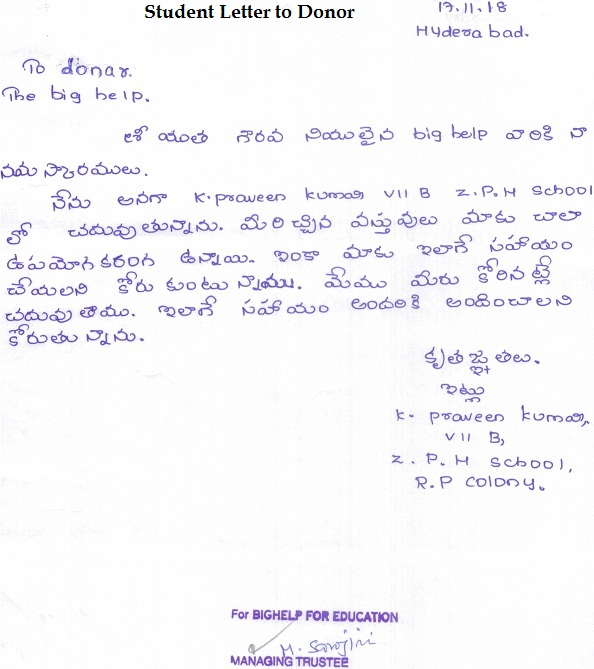 Student Letter to Donor
17.11.18
Hyderabad.
To donar.
The big help.
శ్రీ యంత గౌరవ నియులైన big help వారికి నా
నమ స్కారములు.
నేను అనగా K. praveen kumar VII B Z.P.H School
లో చదువు తున్నాను. మీరి చ్చిన వస్తువులు మాకు చాలా
ఉపయోగ కరంగ ఉన్నాయి. ఇంకా మాకు ఇలాగే సహాయం
చేయలని కోరు కుంటు న్నాము. మేము మీరు కోరిన ట్లే
చదువు తాము. ఇలాగే సహాయం అందరికి అందించాలని
కోరుతు న్నాను.
కృత జ్ఞ తలు.
ఇట్లు
K. praveen kumar,
VII B,
Z. P. H School,
R.P colony.
For BIGHELP FOR EDUCATION
M. Sarojini
MANAGING TRUSTEE